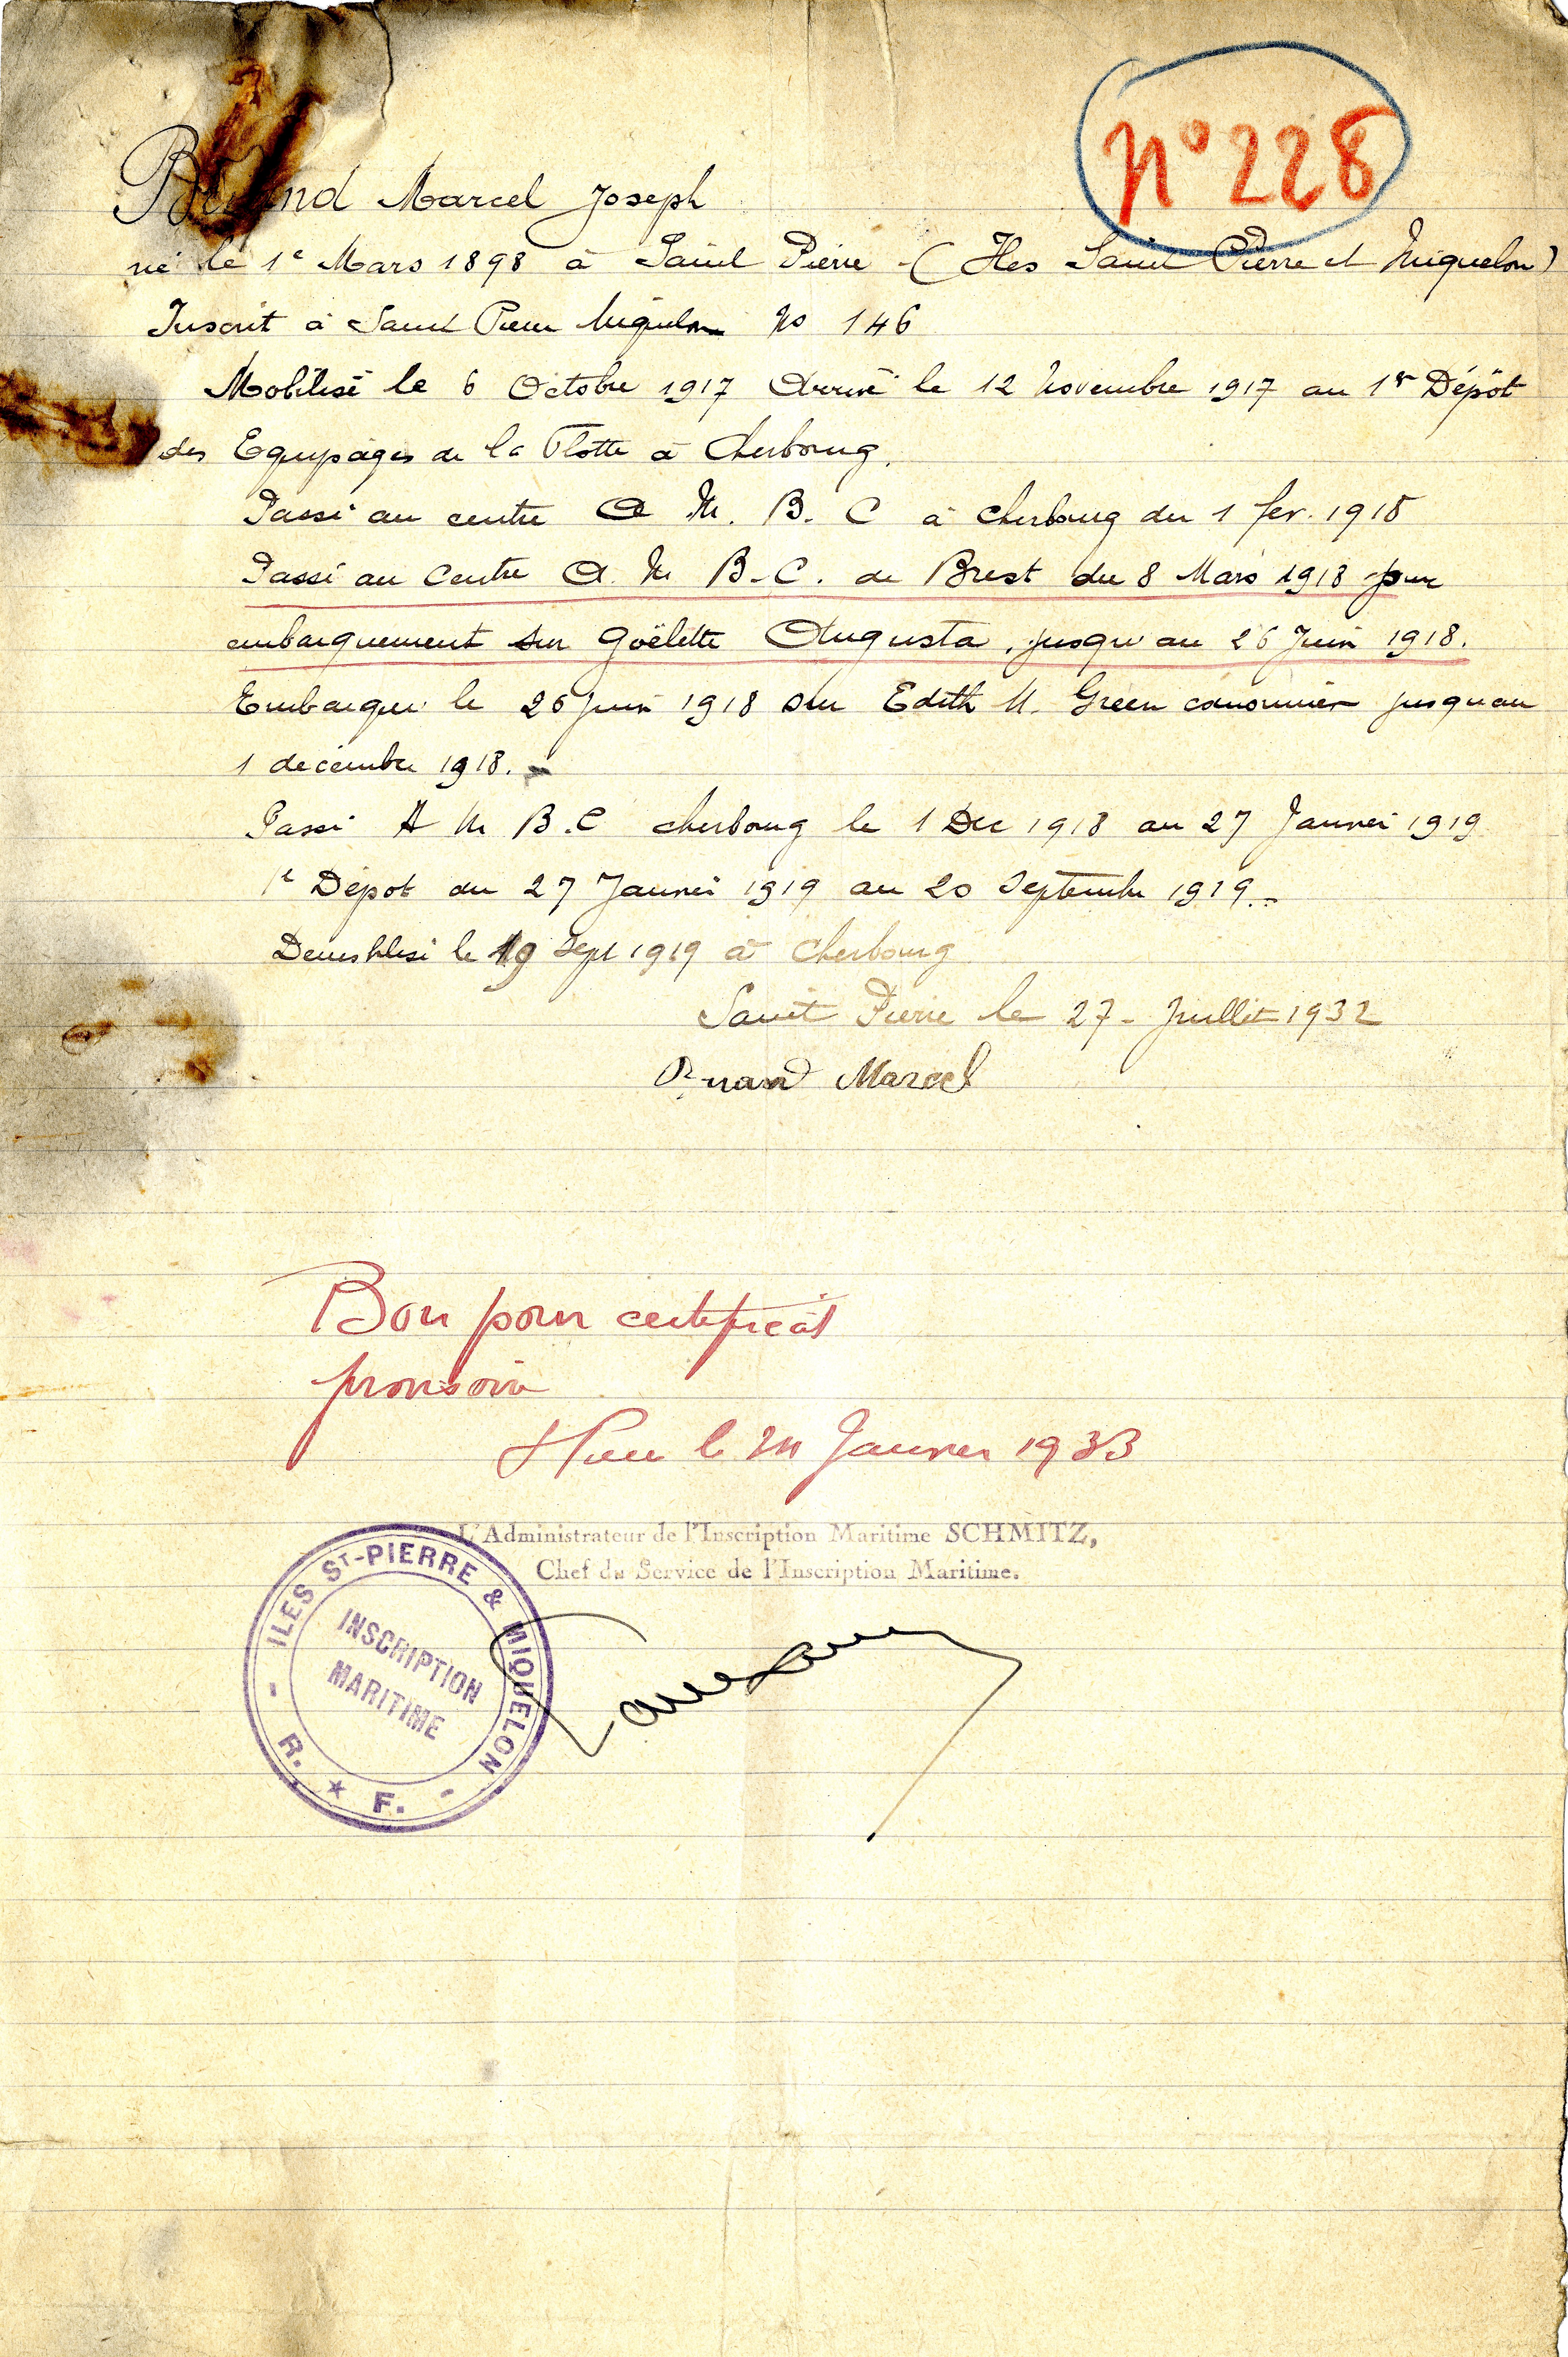 N° 228
Marcel Joseph
né le 1e Mars 1898 à Saint Pierre - (Iles Saint Pierre et Miquelon)
Inscrit à Saint Pierre Miquelon No 146
Mobilisé le 6 Octobre 1917 Arrivé le 12 Novembre 1917 au 1er Dépôt
des Equipages de la Flotte à Cherbourg.
Passé au centre A. M. B. C à Cherbourg du 1 fev. 1918
Passé au Centre A. M B-C. de Brest du 8 Mars 1918 pour
embarquement sur Goëlette Augusta, jusqu'au 26 Juin 1918.
Embarqué le 26 juin 1918 sur Edith M. Green canonnier jusquau
1 décembre 1918.
Passé A M B.C cherbourg le 1 Dec 1918 au 27 Janvier 1919
1e Dépot du 27 Janvier 1919 au 20 Septembre 1919.-
Demobilisé le 19 Sept 1919 à Cherbourg
Saint Pierre le 27 - Juillet 1932
Marcel
Bon pour certificat
provisoire
St Pierre le Janvier 1933
L'Administrateur de l'Inscription Maritime SCHMITZ,
Chef du Service de l'Inscription Maritime.
- ILES ST-PIERRE & MIQUELON -
INSCRIPTION
MARITIME
R. ★ F.